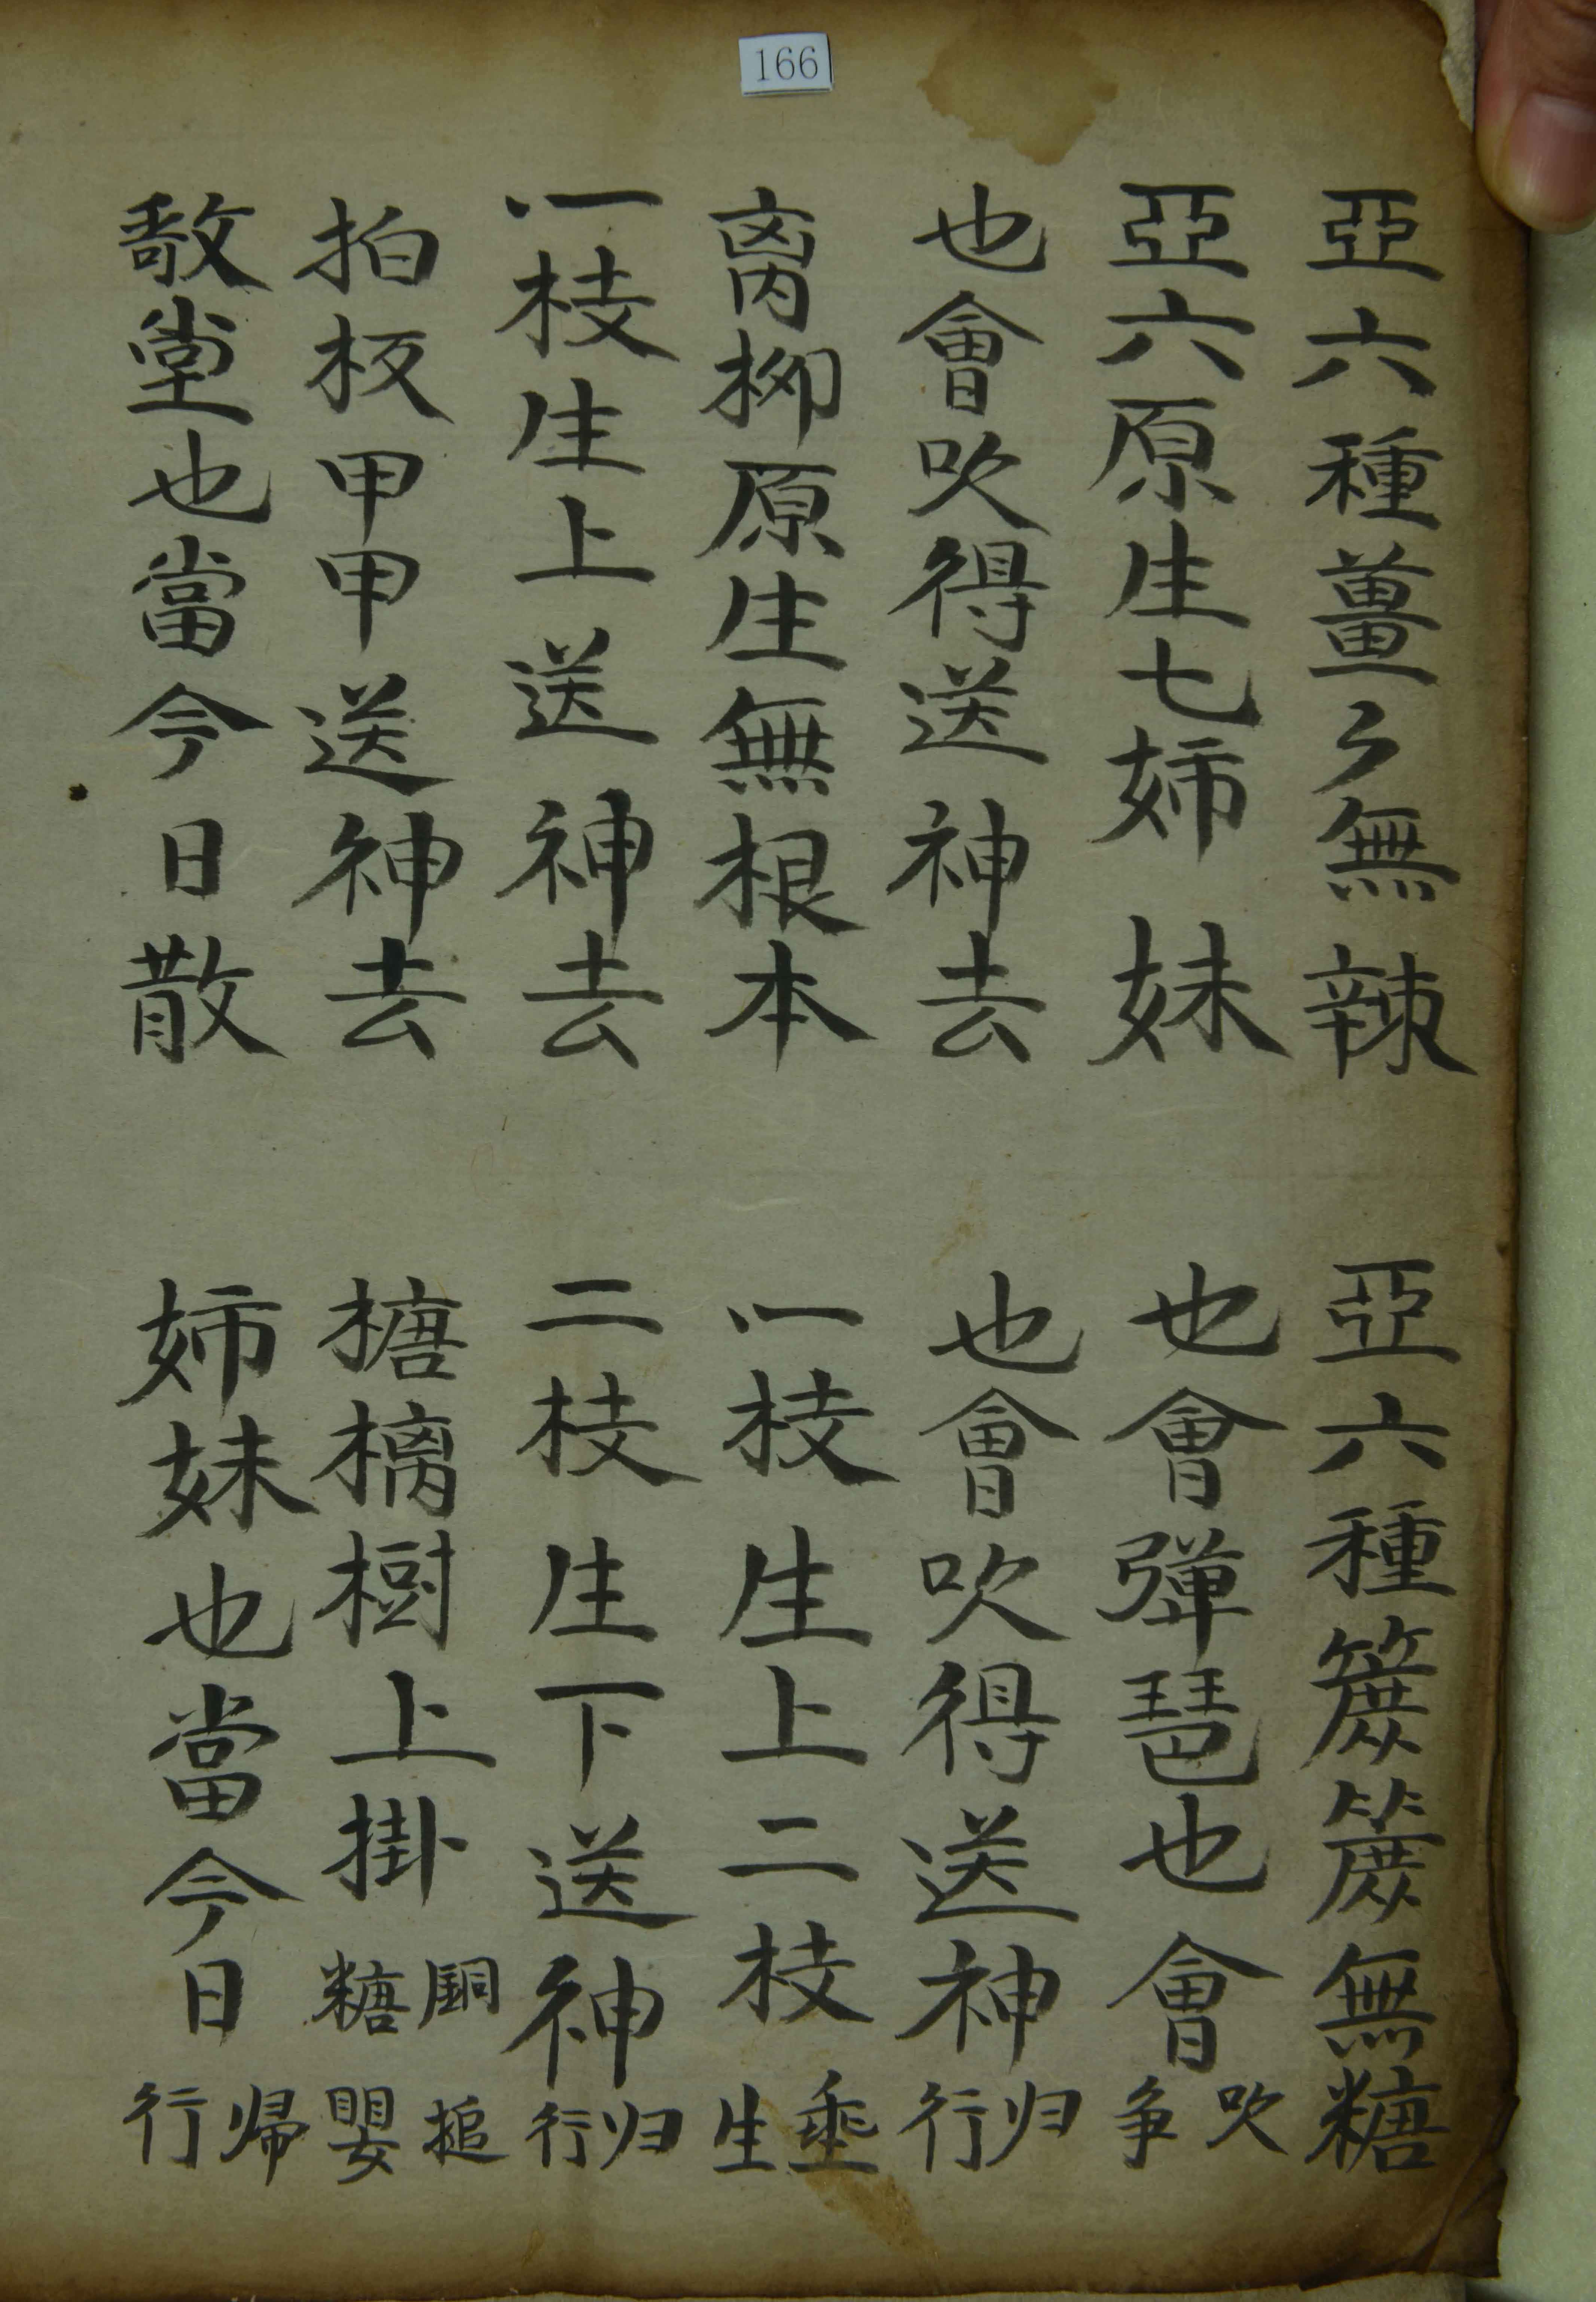 166
亞六種薑々無辣 亞六種簏簏無糖
亞六原生七姉妹 也會彈琶也會吹争
也會吹得送神去 也會吹得送神归行
离柳原生無根本 一枝生上二枝垂生
一枝生上送神去 二枝生下送神归行
拍板甲甲送神去 樹上掛銅槌糖嬰
散堂也當今日散 姉妹也當今日帰行